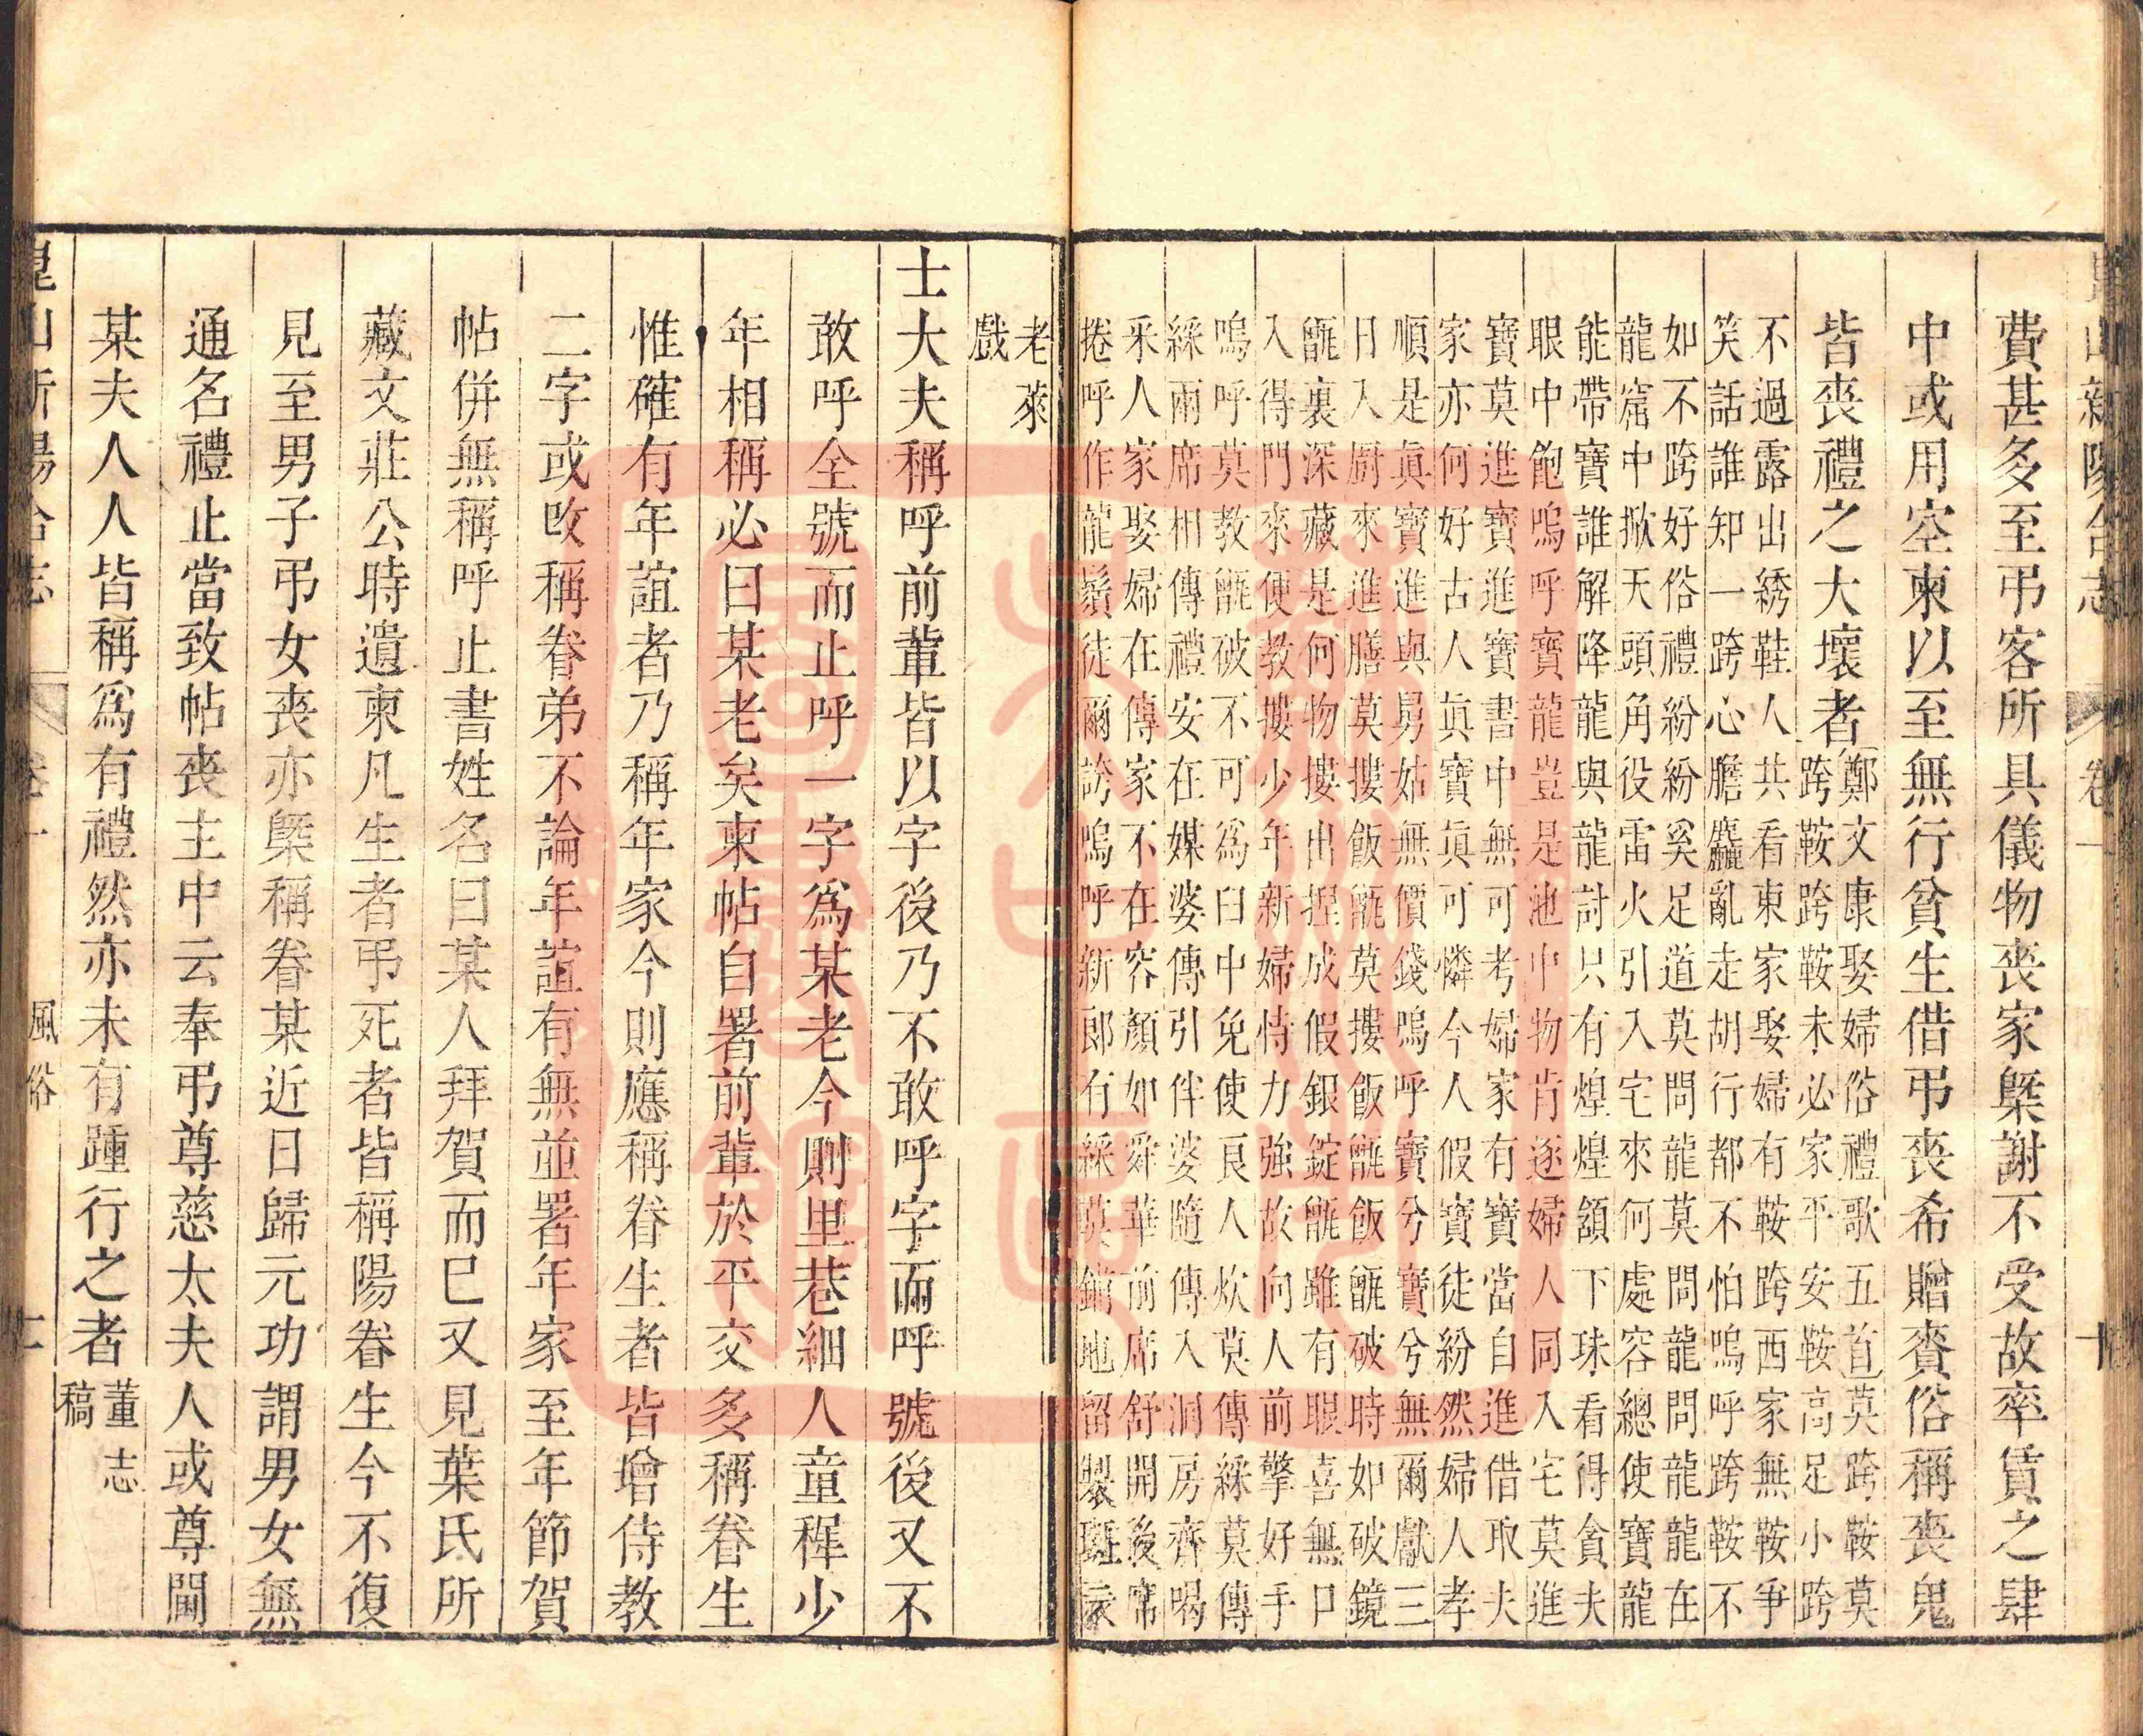 新陽合志 卷一 十
費甚多至弔客所具儀物喪家槩謝不受故率賃之肆
中或用空柬以至無行貧生借弔喪希贈賚俗稱喪鬼
皆喪禮之大壞者
鄭文康娶婦俗禮歌五首莫跨鞍莫
跨鞍跨鞍未必家平安鞍高足小跨
不過露出綉鞋人共看東家娶婦有鞍跨西家無鞍爭
笑話誰知一跨心膽麤亂走胡行都不怕嗚呼跨鞍不
如不跨好俗禮紛紛奚足道莫問龍莫問龍問龍龍在
龍窟中掀天頭角役雷火引入宅來何處容總使寶龍
能帶寶誰解降龍與龍討只有煌煌頷下珠看得貪夫
眼中飽嗚呼寶龍豈是池中物肯逐婦人同入宅莫進
寶莫進寶進寶書中無可考婦家有寶當自進借取夫
家亦何好古人眞寶眞可憐今人假寶徒紛然婦人孝
順是眞寶進與舅姑無價錢嗚呼寶兮寶兮無爾獻三
日入厨來進膳莫摟飯甑莫摟飯甑飯甑破時如破鏡
甑裏深藏是何物摟出捏成假銀錠甑雖有眼喜無口
入得門來便教摟少年新婦恃力強故向人前擎好手
嗚呼莫教甑破不可爲臼中免使良人炊莫傳綵莫傳
綵兩席相傳禮安在媒婆傳引伴婆隨傳入洞房齊喝
釆人家娶婦在傳家不在容顏如舜華前席舒開後席
捲呼作龍鬚徒爾誇嗚呼新郎有綵莫鋪地留製斑衣
老萊
戲
士大夫稱呼前輩皆以字後乃不敢呼字而呼號後又不
敢呼全號而止呼一字爲某老今則里巷細人童穉少
年相稱必曰某老矣柬帖自署前輩於平交多稱眷生
惟確有年誼者乃稱年家今則應稱眷生者皆增侍教
二字或改稱眷弟不論年誼有無並署年家至年節賀
帖併無稱呼止書姓名曰某人拜賀而已又見葉氏所
藏文莊公時遺柬凡生者弔死者皆稱陽眷生今不復
見至男子弔女喪亦槩稱眷某近日歸元功謂男女無
通名禮止當致帖喪主中云奉弔尊慈太夫人或尊閫
某夫人人皆稱爲有禮然亦未有踵行之者
董志
稿
崑山新陽合志 卷一 風俗 十一